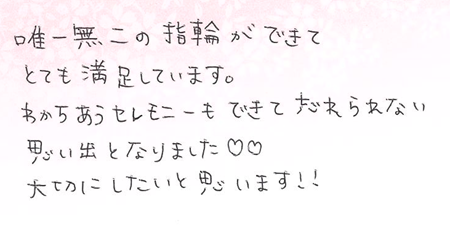 唯一無二の指輪ができて
とても満足しています。
わかちあうセレモニーもできて忘れられない
思い出となりました♡♡
大切にしたいと思います!!